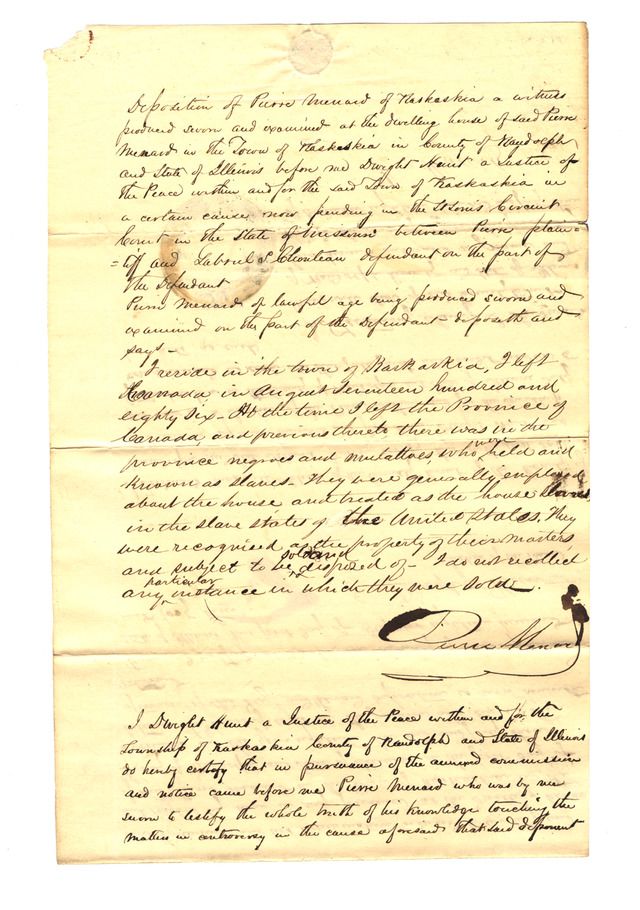 Deposition of Pierre Menard of Kaskaskia a witness
produced sworn and examined at the dwelling house of said Pierre
Menard in the Town of Kaskaskia in County of Randolph
and State of Illinois before me Dwight Hunt a Justice of
the Peace within and for the said Town of Kaskaskia in
a certain cause now pending in the St Louis Circuit
Court in the State of Missouri between Pierre plain=
=tiff and Gabriel S. Chouteau defendant on the part of
the Defendant
Pierre Menard of lawful age being produced sworn and
examined on the part of the Defendant deposeth and
says –
I reside in the town of Kaskaskia, I left
Canada in August Seventeen hundred and
eighty six – At the time I left the Province of
Canada and previous thereto there was in the
province negroes and mulattoes, who were held and
known as slaves. They were generally employed
about the house and treated as the house slaves
in the slave states of the United States. They
were recognised as the property of their masters
and subject to be sold and disposed of – I do not recollect
any particular instance in which they were sold.
Pierre Menard
I Dwight Hunt a Justice of the Peace within and for the
Township of Kaskaskia County of Randolph and State of Illinois
do hereby certify that in pursuance of the annexed commission
and notice came before me Pierre Menard who was by me
sworn to testify the whole truth of his knowledge touching the
matters in controversy in the cause aforesaid that said deponent